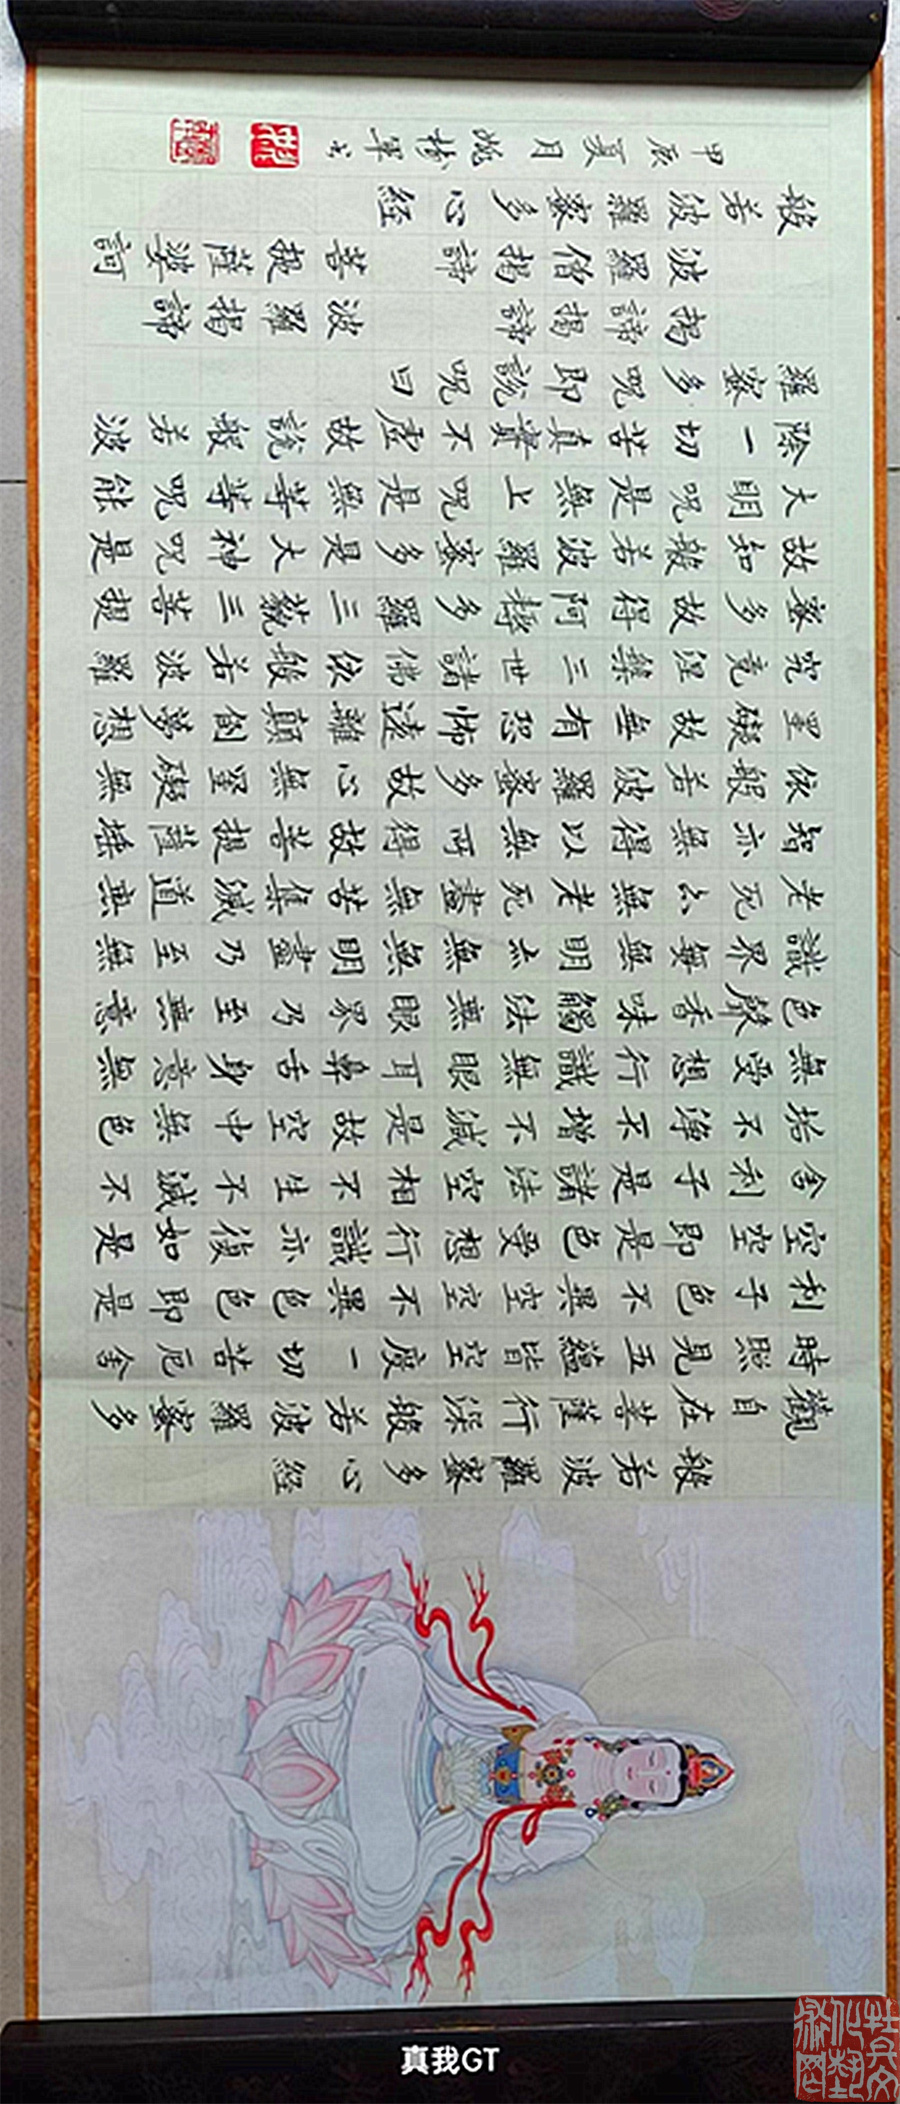 般若波羅蜜多心经
觀自在菩薩行深般若波羅蜜多
時照見五蘊皆空度一切苦厄舍
利子色不異空空不異色色即是
空空即是色受想行識亦復如是
舍利子是諸法空相不生不滅不
垢不淨不增不減是故空中無色
無受想行識無眼耳鼻舌身意無
色聲香味觸法無眼界乃至無意
識界無無明亦無無明盡乃至無
老死亦無老死盡無苦集滅道無
智亦無得以無所得故菩提薩埵
依般若波羅蜜多故心無罣礙無
罣礙故無有恐怖遠離顛倒夢想
究竟涅槃三世諸佛依般若波羅
蜜多故得阿耨多羅三藐三菩提
故知般若波羅蜜多是大神呪是
大明呪是無上呪是無等等呪能
除一切苦真實不虛故說般若波
羅蜜多呪即說呪曰
揭諦揭諦 波羅揭諦
波羅僧揭諦 菩提薩婆訶
般若波羅蜜多心经
甲辰夏月姚樹軍书
真我GT